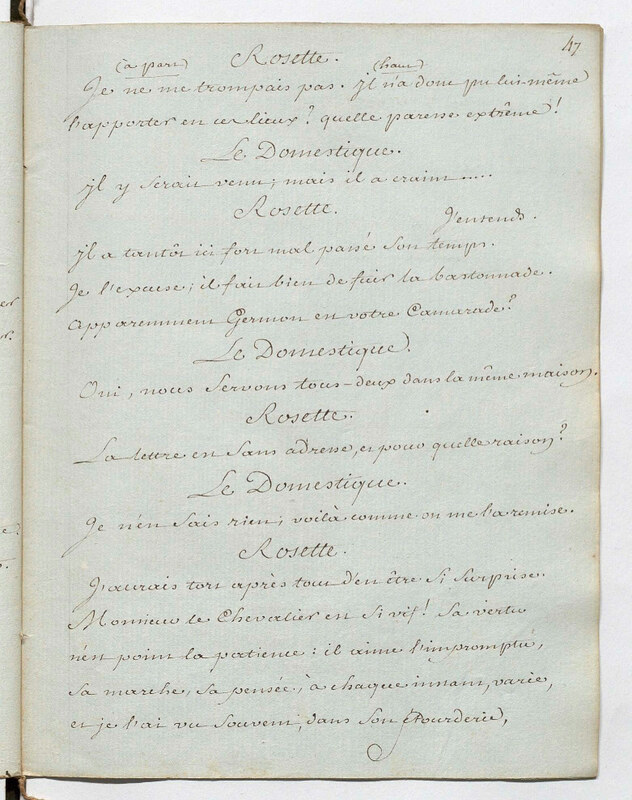 47
Rosette.
(à part) (haut)
Je ne me trompais pas. Il n'a donc pu lui-même
l'apporter en ces lieux? quelle paresse extrême!
Le Domestique.
Il y serait venu; mais il a craint.....
Rosette.
J'entends.
Il a tantôt ici fort mal passé son temps.
Je l'excuse; il fait bien de fuir la bastonnade.
Apparemment Germon est votre Camarade?
Le Domestique.
Oui, nous servons tous-deux dans la même maison.
Rosette.
La lettre est sans adresse, et pour quelle raison?
Le Domestique.
Je n'en sais rien; voilà comme on me l'a remise.
Rosette.
J'aurais tort après tout d'en être si surprise.
Monsieur le Chevalier est si vif! Sa vertu
n'est point la patience: il aime l'impromptu,
Sa marche, sa pensée, à chaque instant, varie,
et je l'ai vu souvent, dans son étourderie,